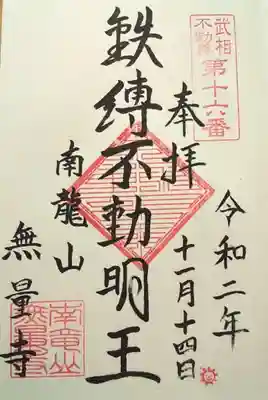 武相
不動尊
第十六番
奉拝
令和二年
十一月十四日
鉄縛不動明王
南龍山
無量寺
南竜山
無量寺